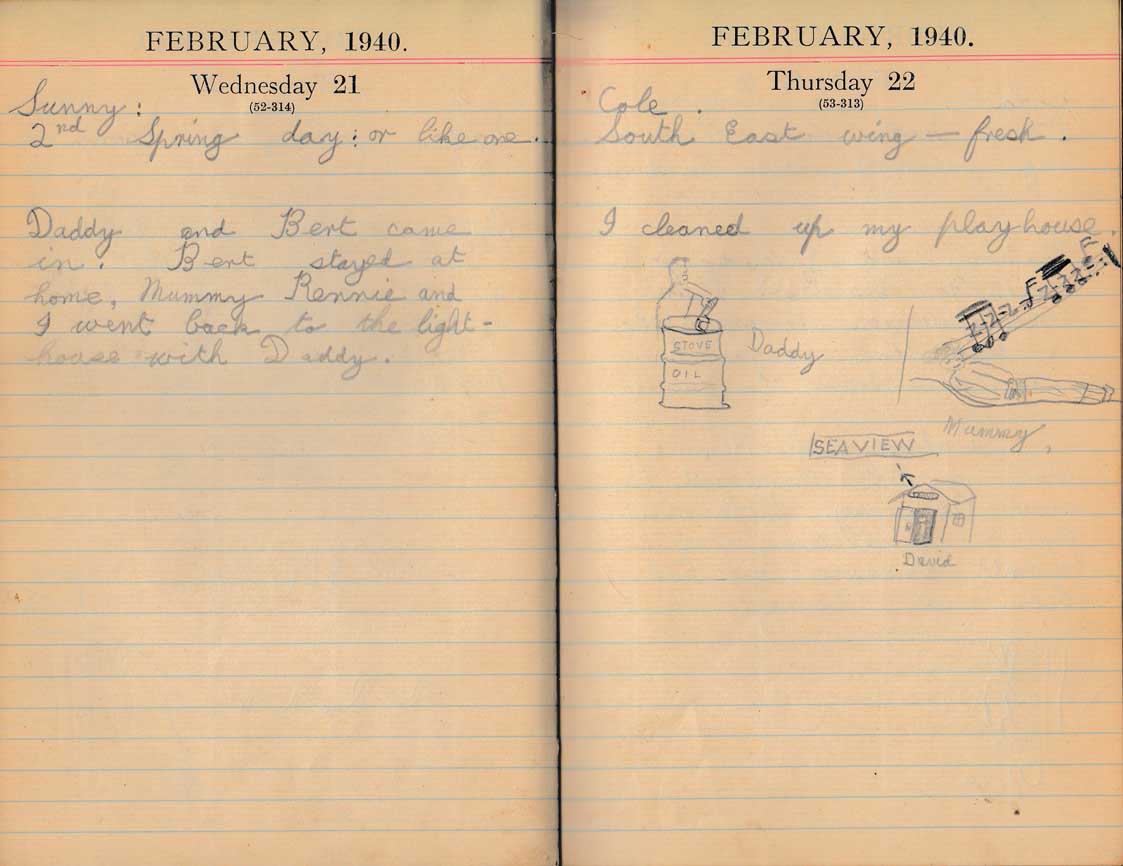 FEBRUARY, 1940.
Wednesday 21
(52-314)
Sunny:
2nd Spring day: or like one.
Daddy and Bert came
in. Bert stayed at
home, Mummy Rennie and
I went back to the light-
house with Daddy.
FEBRUARY, 1940.
Thursday 22
(53-313)
Cole.
South East wing — fresh.
I cleaned up my playhouse.
STOVE
OIL
Daddy
Z-Z-Z-Z Z Z Z
Mummy,
SEAVIEW
David